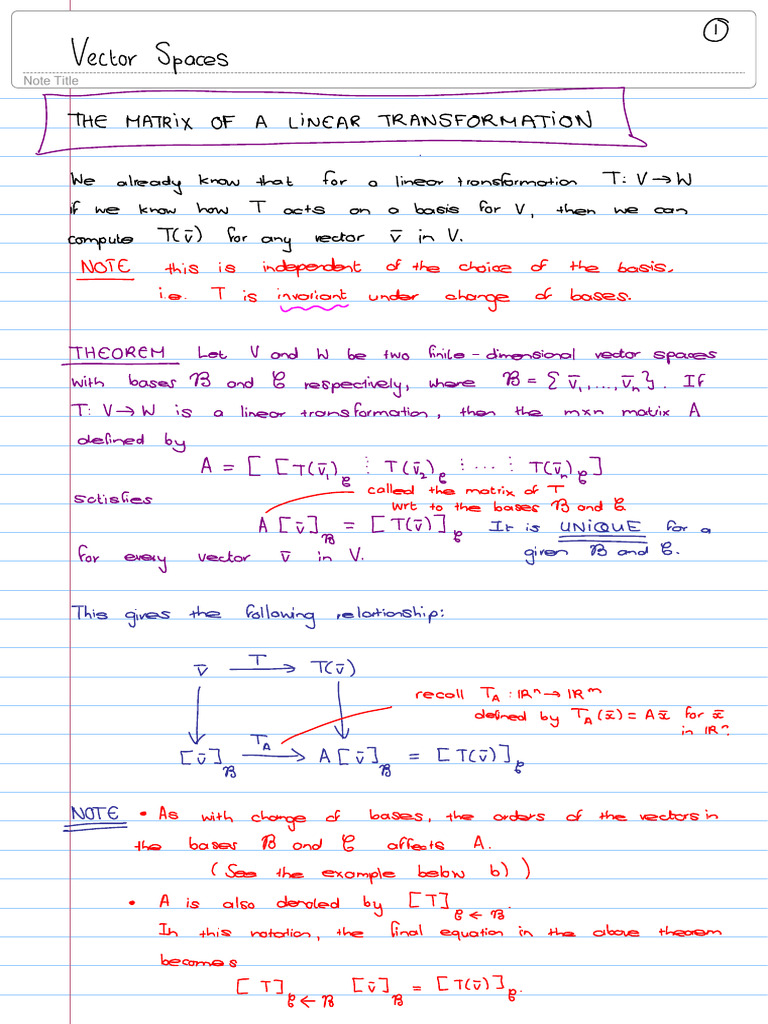 ①
Vector Spaces
Note Title
THE MATRIX OF A LINEAR TRANSFORMATION
We already know that for a linear transformation T: V → W
if we know how T acts on a basis for V, then we can
compute T(v̄) for any vector v̄ in V.
NOTE this is independent of the choice of the basis.
i.e. T is invariant under change of bases.
THEOREM Let V and W be two finite-dimensional vector spaces
with bases ℬ and 𝒞 respectively, where ℬ = {v̄₁, ..., v̄ₙ}. If
T: V → W is a linear transformation, then the m×n matrix A
defined by
A = [ [T(v̄₁)_𝒞 ⋮ T(v̄₂)_𝒞 ⋮ ... ⋮ T(v̄ₙ)_𝒞 ]
called the matrix of T
satisfies
wrt to the bases ℬ and 𝒞.
A [v̄]_ℬ = [T(v̄)]_𝒞 It is UNIQUE for a
for every vector v̄ in V. given ℬ and 𝒞.
This gives the following relationship:
v̄ T → T(v̄)
recall T_A : ℝⁿ → ℝᵐ
defined by T_A(x̄) = Ax̄ for x̄
in ℝⁿ
[v̄]_ℬ T_A → A[v̄]_ℬ = [T(v̄)]_𝒞
NOTE • As with change of bases, the orders of the vectors in
the bases ℬ and 𝒞 affects A.
(See the example below b))
• A is also denoted by [T]_𝒞←ℬ.
In this notation, the final equation in the above theorem
becomes
[T]_𝒞←ℬ [v̄]_ℬ = [T(v̄)]_𝒞.